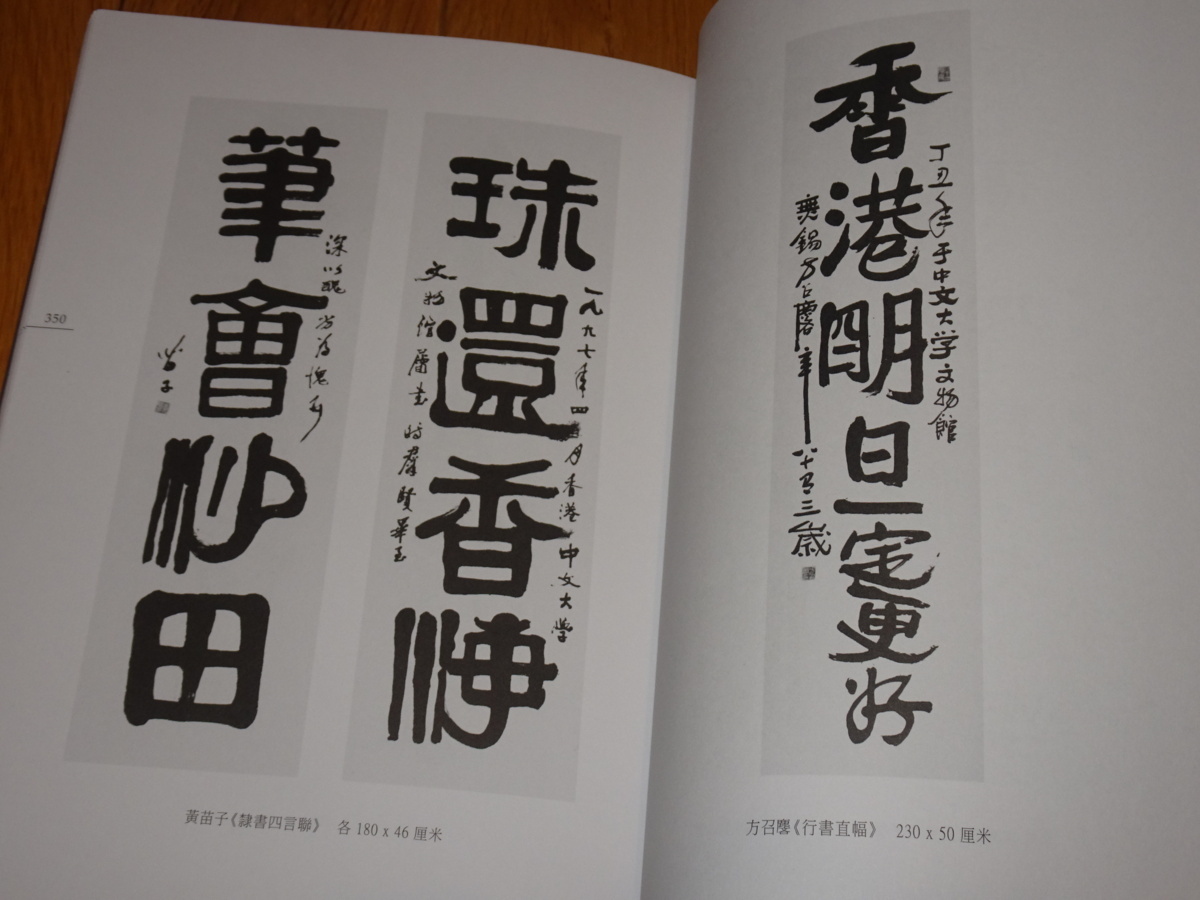 350
珠還香海
一九九七年四月香港中文大学
文物館屬書 時群賢畢至
筆會沙田
深以 為愧
苗子
黃苗子《隸書四言聯》 各 180 x 46 厘米
丁丑年于中文大学文物館
香港明日一定更好
無錫方召麐年八十有三歲
方召麐《行書直幅》 230 x 50 厘米